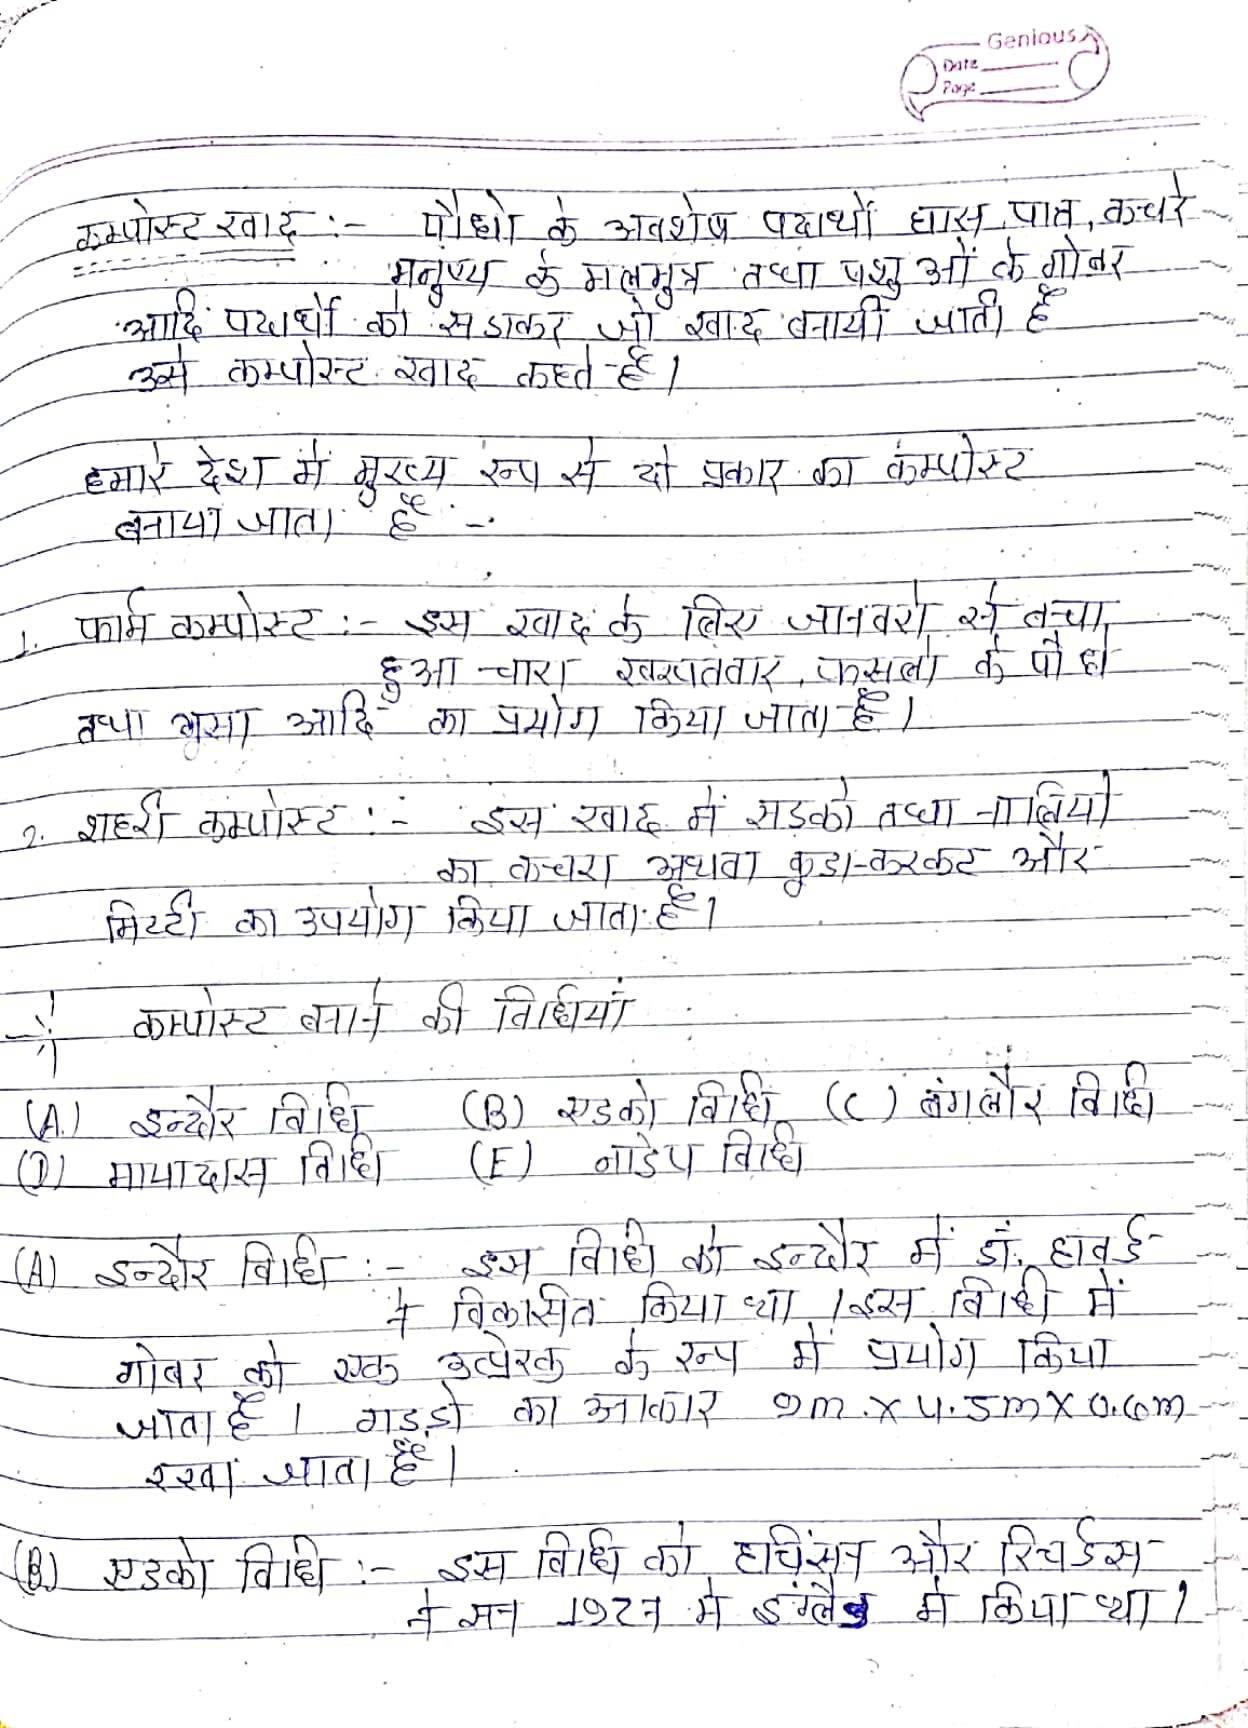 Genious
Date
Page
कम्पोस्ट खाद :- पौधो के अवशेष पदार्थो घास, पात, कचरे
मनुष्य के मलमुत्र तथा पशुओं के गोबर
आदि पदार्थो को सडाकर जो खाद बनायी जाती है
उसे कम्पोस्ट खाद कहते है।
हमारे देश में मुख्य रूप से दो प्रकार का कंम्पोस्ट
बनाया जाता है :-
1. फार्म कम्पोस्ट :- इस खाद के लिए जानवरो से बचा
हुआ चारा खरपतवार, फसलो के पौधो
तथा भुसा आदि का प्रयोग किया जाता है।
2. शहरी कम्पोस्ट :- इस खाद में सड़को तथा नालियो
का कचरा अथवा कुडा-करकट और
मिटटी का उपयोग किया जाता है।
कम्पोस्ट बनाने की विधियाँ
(A) इन्दौर विधि (B) एडको विधि (C) बंगलौर विधि
(D) मायादास विधि (E) नाडेप विधि
(A) इन्दौर विधि :- इस विधि को इन्दौर में डॉ. हावर्ड
ने विकासित किया था। इस विधी में
गोबर को एक उत्प्रेरक के रूप में प्रयोग किया
जाता है। गडडो का आकार 9m x 4.5m x 0.6m
रखा जाता है।
(B) एडको विधि :- इस विधि को हचिंसन और रिचर्डस
ने सन में इंग्लैड में किया था।